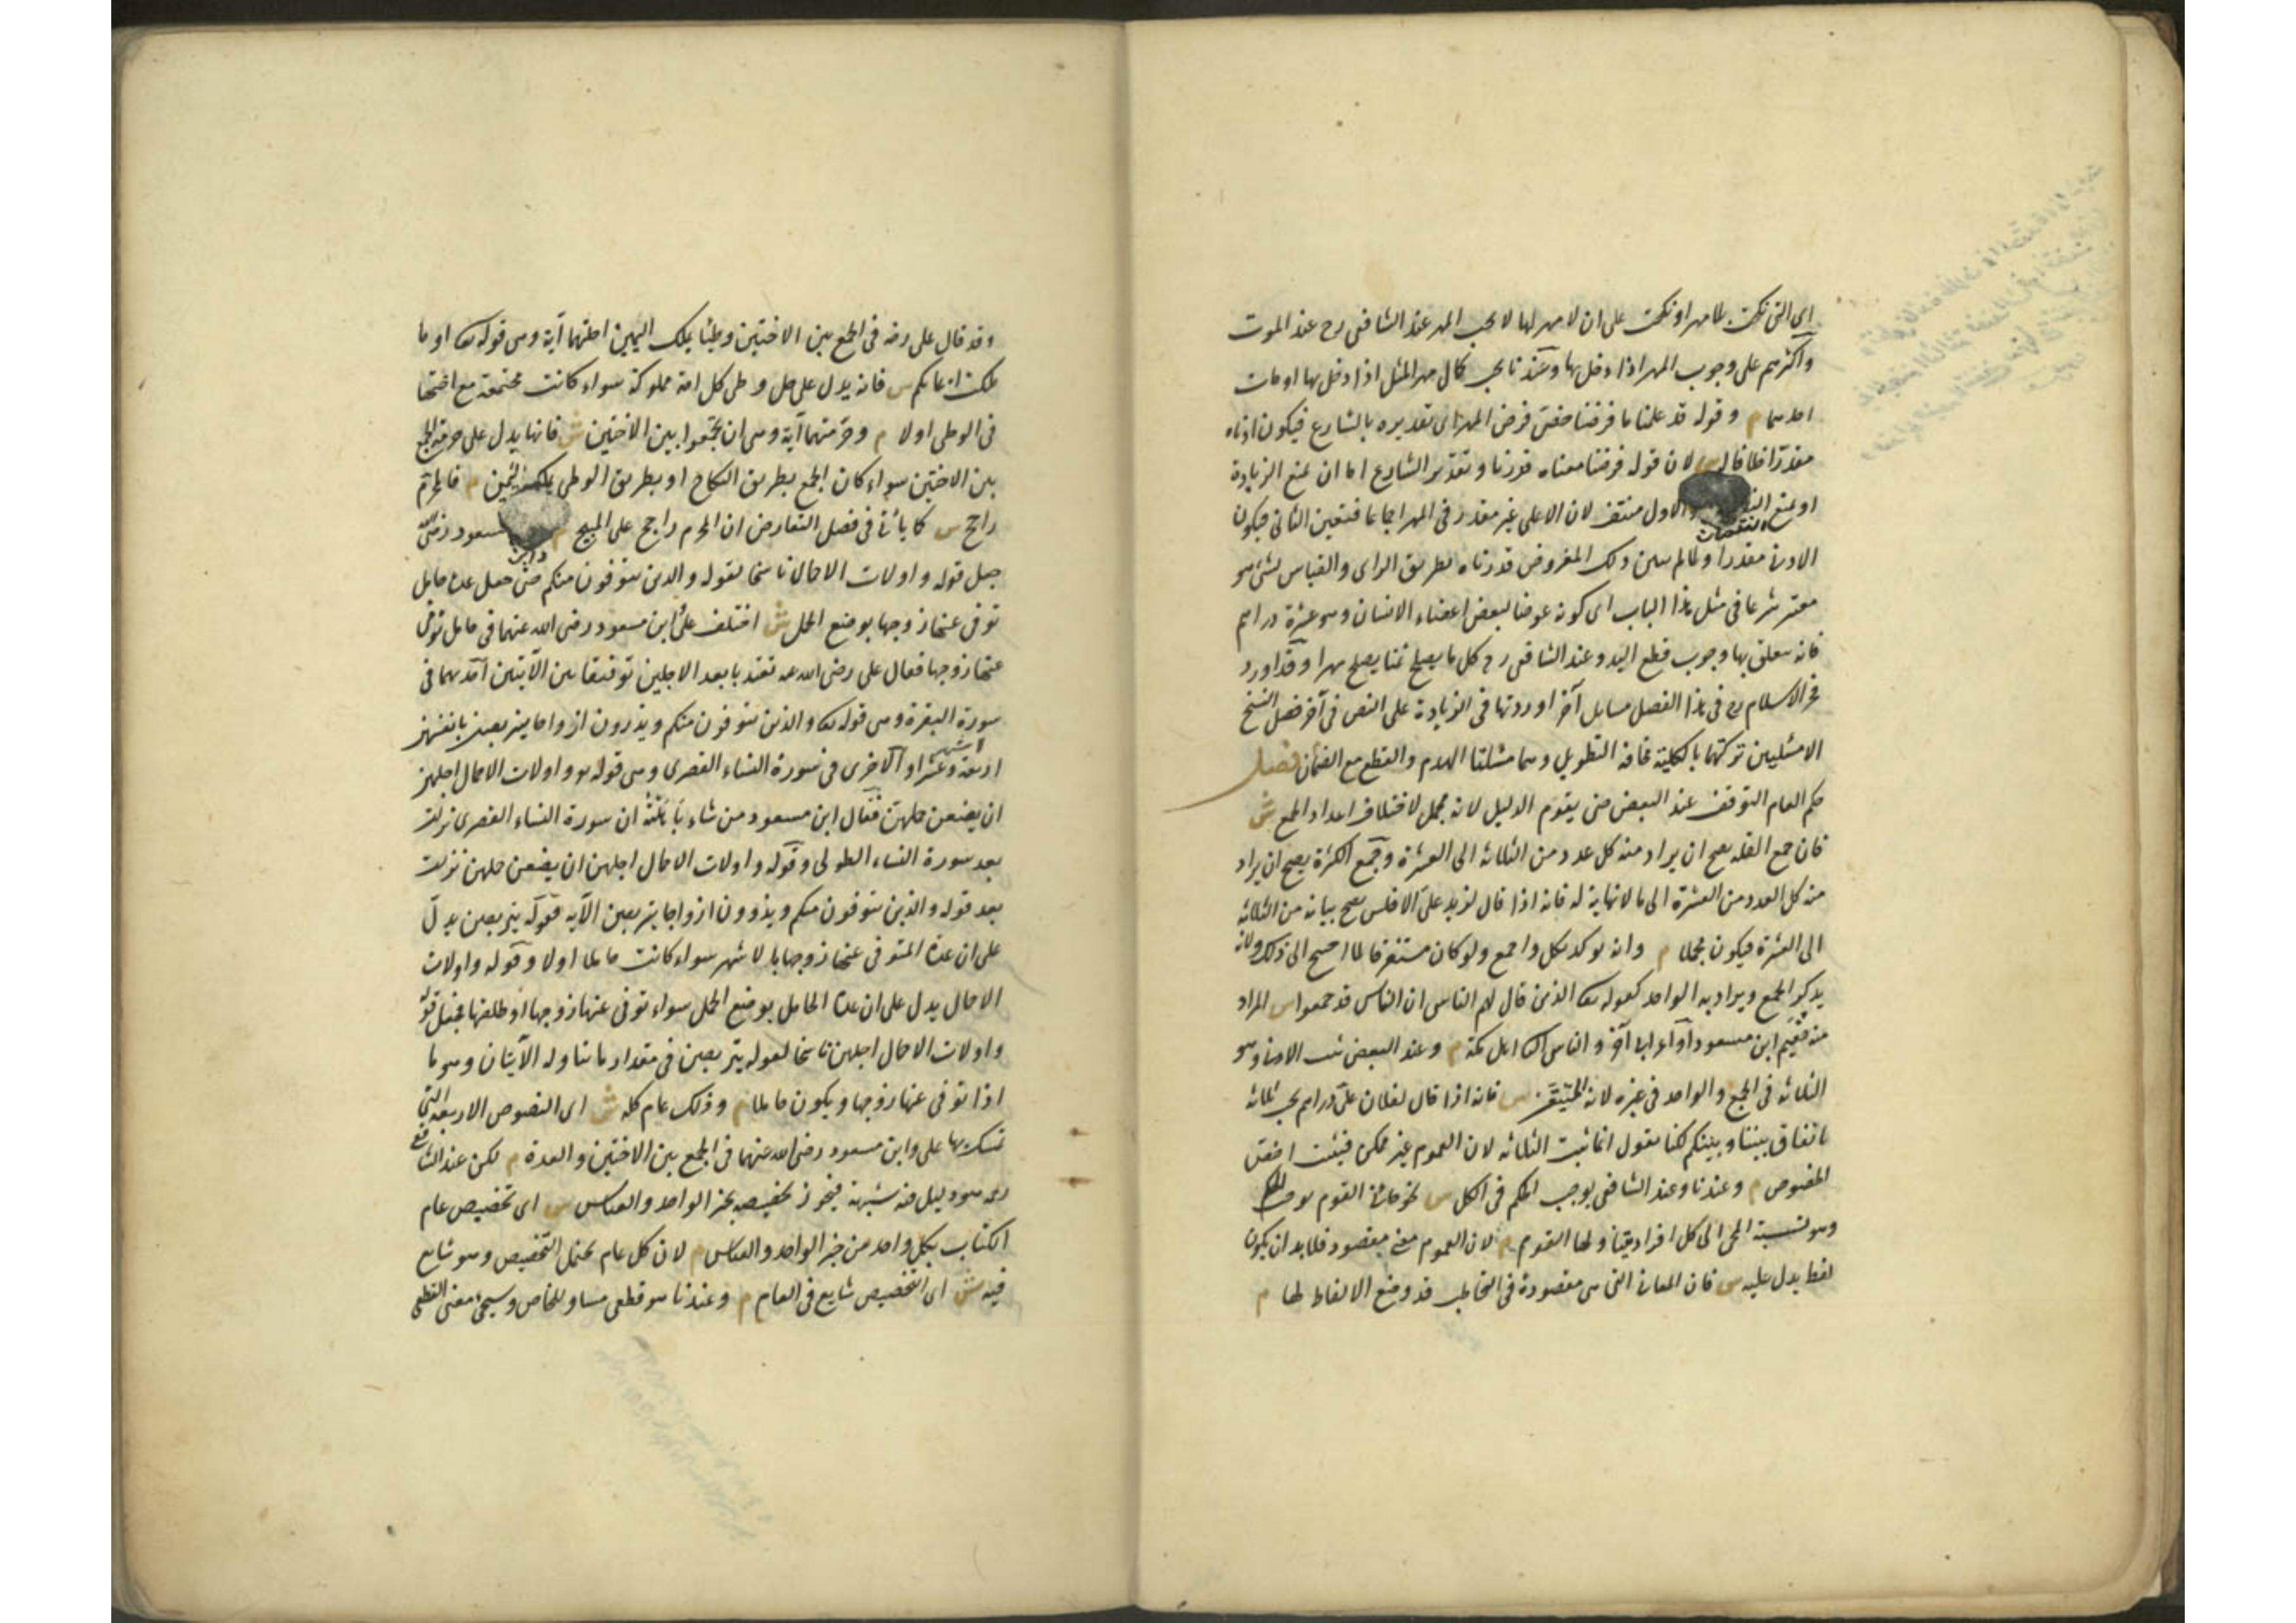 اى التى نكحت بلا مهر او نكحت على ان لا مهر لها لا يجب المهر عند الشافعى رح عند الموت
واكثرهم على وجوب المهر اذا دخل بها وعندنا يجب كمال مهر المثل اذا دخل بها او مات
احدهما م وقوله قد علمنا ما فرضنا خص فرض المهر اى تقديره بالشارع فيكون ادناه
مقدرا خلافا له لان قوله فرضنا معناه قدرنا وتقدير الشارع اما ان يمنع الزيادة
او يمنع النقصان والاول منتف لان الاعلى غير مقدر فى المهر اجماعا فتعين الثانى فيكون
الادنى مقدرا ولما لم يبين ذلك المفروض قدرناه بطريق الراى والقياس بشئ هو
معتبر شرعا فى مثل هذا الباب اى كونه عوضا لبعض اعضاء الانسان وهو عشرة دراهم
فانه يتعلق بها وجوب قطع اليد وعند الشافعى رح كل ما يصلح ثمنا يصلح مهرا وقد اورد
فخر الاسلام رح فى هذا الفصل مسايل آخر اوردتها فى الزيادة على النص فى آخر فصل النسخ
الا مثليين تركتهما بالكلية مخافة التطويل وهما مسئلتا الهدم والقطع مع الضمان فصل
حكم العام التوقف عند البعض حتى يقوم الدليل لانه مجمل لاختلاف اعداد الجمع ش
فان جمع القلة يصح ان يراد منه كل عدد من الثلاثة الى العشرة وجمع الكثرة يصح ان يراد
منه كل العدد من العشرة الى ما لا نهاية له فانه اذا قال لزيد على الافلس يصح بيانه من الثلاثة
الى العشرة فيكون مجملا م وانه يوكد بكل واجمع ولو كان مستغرقا لما احتيج الى ذلك ولانه
يذكر الجمع ويراد به الواحد كقوله تعه الذين قال لهم الناس ان الناس قد جمعوا س المراد
منه نعيم ابن مسعود او اعرابى آخر والناس الثانى اهل مكة م وعند البعض يثبت الادنى وهو
الثلاثة فى الجمع والواحد فى غيره لانه المتيقن س فانه اذا قال لفلان على دراهم يجب ثلاثة
باتفاق بيننا وبينكم لكنا نقول انما يثبت الثلاثة لان العموم غير ممكن فيثبت اخص
الخصوص م وعندنا وعند الشافعى يوجب الحكم فى الكل س نحو جاءنى القوم يوجب الحكم
وهو نسبة المجئ الى كل افراد يتناولها القوم م لان العموم معنى مقصود فلا بد ان يكون
لفظ يدل عليه س فان المعانى التى هى مقصودة فى التخاطب قد وضع الالفاظ لها م
وقد قال على رضه فى الجمع بين الاختين وطئا بملك اليمين احلتهما آية وهى قوله تعه او ما
ملكت ايمانكم س فانه يدل على حل وطى كل امة مملوكة سواء كانت مجتمعة مع اختها
فى الوطى اولا م وحرمتهما آية وهى ان تجمعوا بين الاختين ش فانها يدل على حرمة الجمع
بين الاختين سواء كان الجمع بطريق النكاح او بطريق الوطى بملك اليمين م فالمحرم
راجح س كما يأتى فى فصل التعارض ان المحرم راجح على المبيح م وابن مسعود رضى الله
جعل قوله واولات الاحمال ناسخا لقوله والذين يتوفون منكم حتى جعل عدة حامل
توفى عنها زوجها بوضع الحمل ش اختلف على ابن مسعود رضى الله عنهما فى حامل توفى
عنها زوجها فقال على رضى الله عنه تعتد بابعد الاجلين توفيقا بين الآيتين احديهما فى
سورة البقرة وهى قوله تعه والذين يتوفون منكم ويذرون ازواجا يتربصن بانفسهن
اربعة اشهر وعشرا والاخرى فى سورة النساء القصرى وهى قوله تعه واولات الاحمال اجلهن
ان يضعن حملهن فقال ابن مسعود من شاء باهلته ان سورة النساء القصرى نزلت
بعد سورة النساء الطولى وقوله واولات الاحمال اجلهن ان يضعن حملهن نزلت
بعد قوله والذين يتوفون منكم ويذرون ازواجا يتربصن الآية فقوله يتربصن يدل
على ان عدة المتوفى عنها زوجها بالاشهر سواء كانت حاملا اولا وقوله واولات
الاحمال يدل على ان عدة الحامل بوضع الحمل سواء توفى عنها زوجها او طلقها فجعل قوله
واولات الاحمال اجلهن ناسخا لقوله يتربصن فى مقدار ما تناوله الآيتان وهو ما
اذا توفى عنها زوجها ويكون حاملا م وذلك عام كله ش اى النصوص الاربعة التى
تمسك بها على وابن مسعود رضى الله عنهما فى الجمع بين الاختين والعدة م لكن عند الشافعى
رح هو دليل فيه شبهة فيجوز تخصيصه بخبر الواحد والقياس س اى تخصيص عام
الكتاب بكل واحد من خبر الواحد والقياس م لان كل عام يحتمل التخصيص وهو شايع
فيه ش اى التخصيص شايع فى العام م وعندنا هو قطعى مساو للخاص وسيجئ معنى القطعى